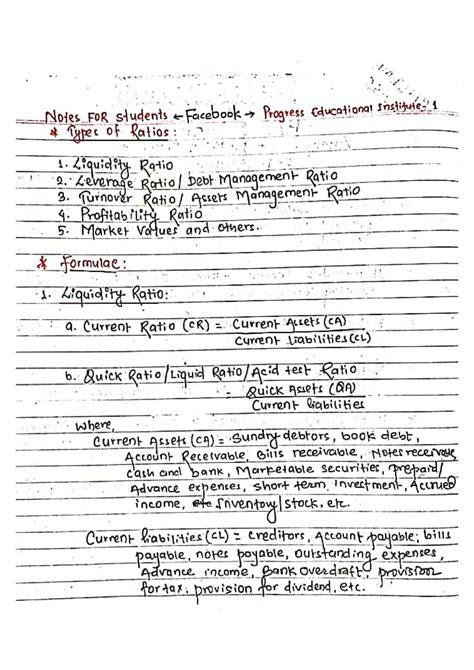 Notes FOR students ← Facebook → Progress Educational Institute-1
* Types of Ratios:
1. Liquidity Ratio
2. Leverage Ratio/ Debt Management Ratio
3. Turnover Ratio/ Assets Management Ratio
4. Profitability Ratio
5. Market Values and others.
* Formulae:
1. Liquidity Ratio:
a. Current Ratio (CR) = Current Assets (CA)
Current liabilities (CL)
b. Quick Ratio/Liquid Ratio/Acid test Ratio
= Quick Assets (QA)
Current liabilities
Where,
Current Assets (CA) = Sundry debtors, book debt,
Account Receivable, Bills receivable, Notes receivable
cash and bank, Marketable securities, prepaid/
Advance expenses, short term investment, Accrued
income, etc Inventory/stock. etc.
Current liabilities (CL) = creditors, Account payable, bills
payable, notes payable, outstanding expenses,
Advance income, Bank overdraft, provision
for tax, provision for dividend, etc.